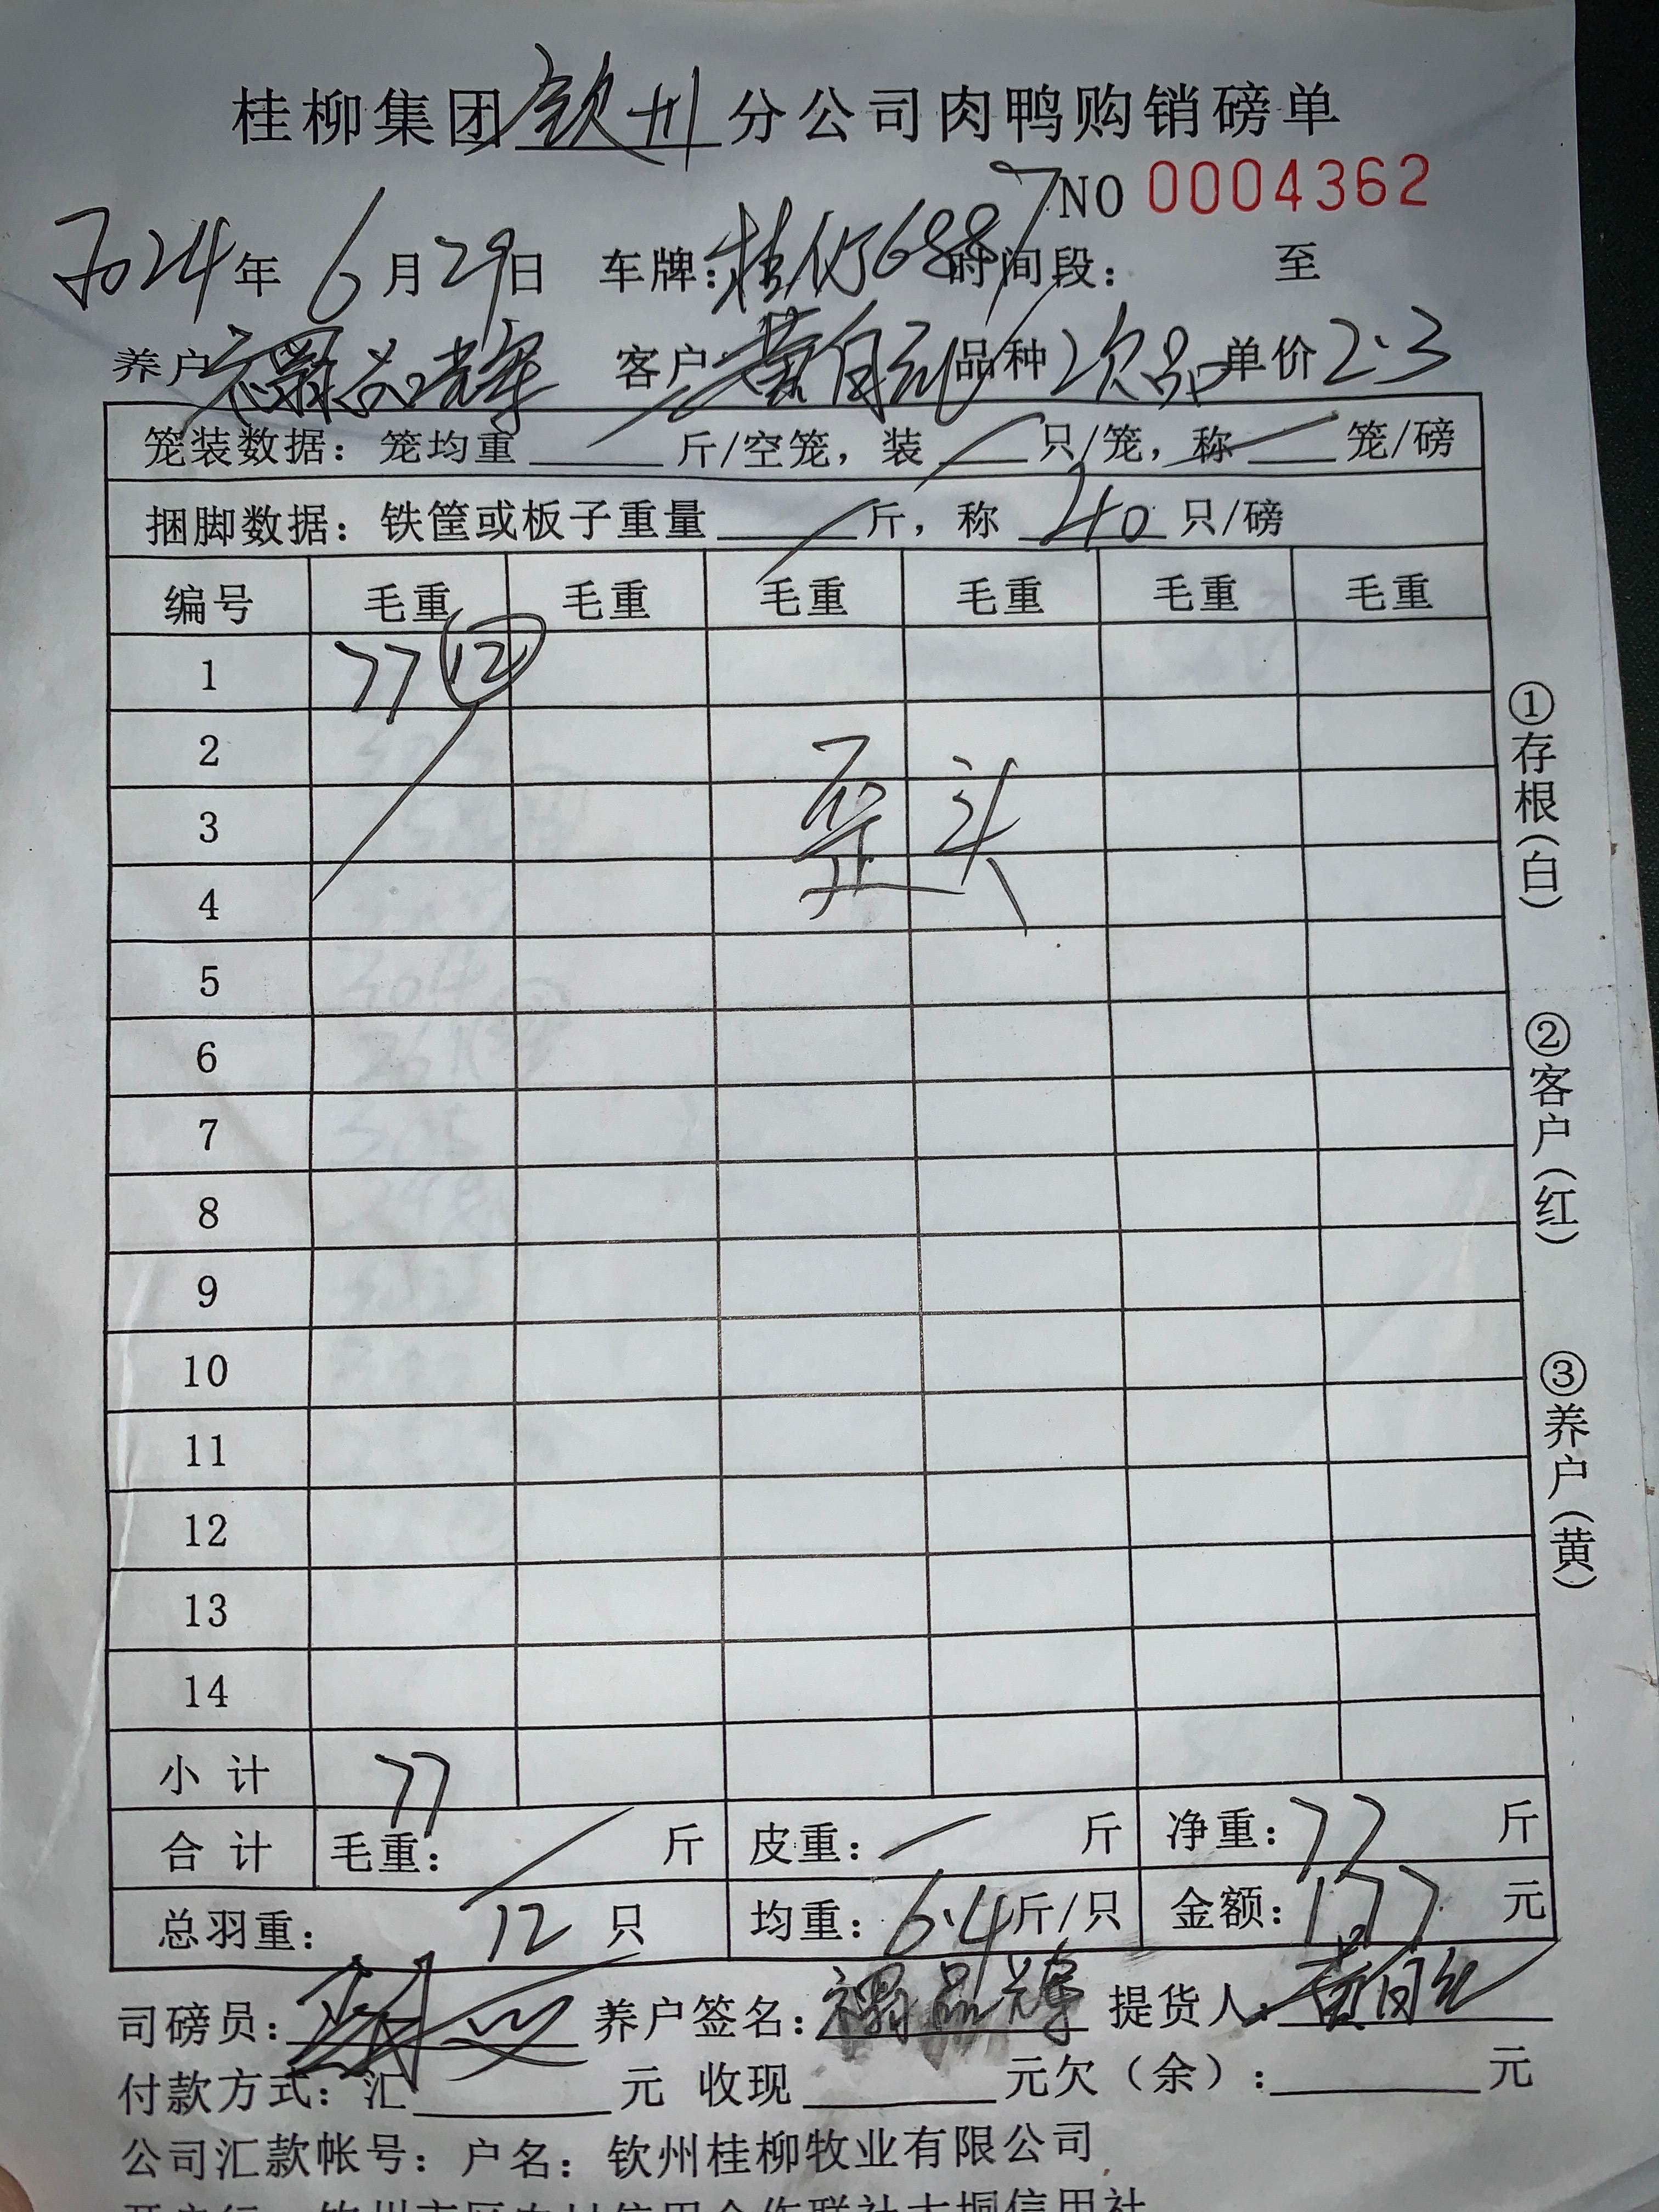 桂柳集团钦州分公司肉鸭购销磅单
NO 0004362
2024年 6月29日 车牌:桂 68887 时间段: 至
养户 客户: 黄自 品种 次品 单价 2.3
笼装数据: 笼均重 斤/空笼, 装 只/笼, 称 笼/磅
捆脚数据: 铁筐或板子重量 斤, 称 40 只/磅
编号 毛重 毛重 毛重 毛重 毛重 毛重
1 77 12
2
3 歪头
4
5
6
7
8
9
10
11
12
13
14
小计 77
合计 毛重: 斤 皮重: 斤 净重: 77 斤
总羽重: 12 只 均重: 6.4 斤/只 金额: 177 元
司磅员: 养户签名: 提货人:
付款方式: 汇 元 收现 元欠(余): 元
公司汇款帐号: 户名: 钦州桂柳牧业有限公司
①存根(白)
②客户(红)
③养户(黄)